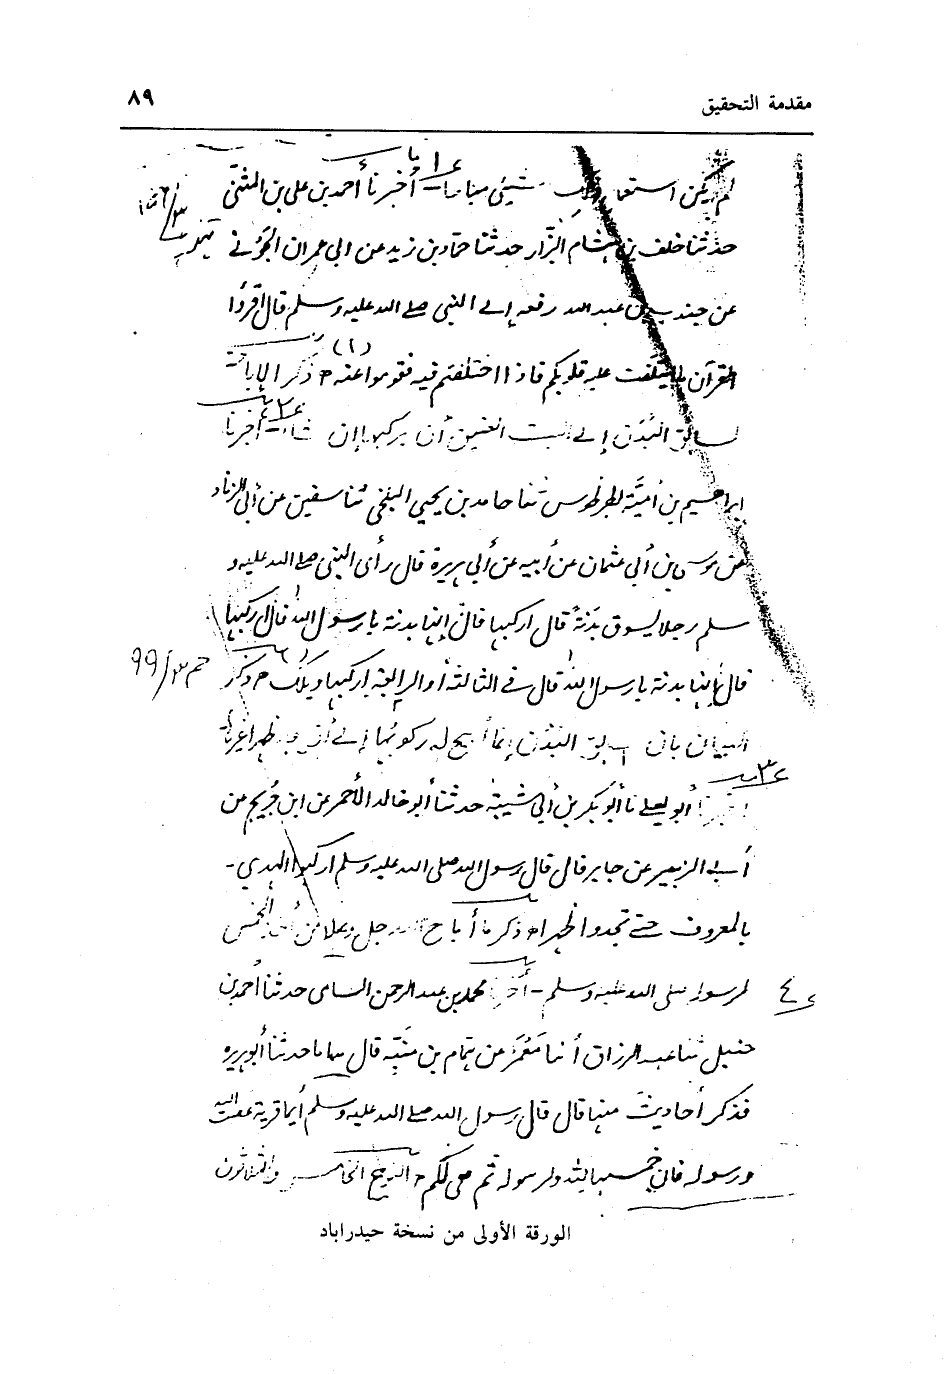 مقدمة التحقيق
٨٩
لم يكن استعما شيئ مباحا - أخبرنا أحمد بن علي بن المثنى
حدثنا خلف بن هشام البزار حدثنا حماد بن زيد عن ابي عمران الجوني
عن جندب بن عبد الله رفعه إلى النبي صلى الله عليه وسلم قال اقرؤا
القرآن ما ائتلفت عليه قلوبكم فاذا اختلفتم فيه فقوموا عنه ذكر الإباحة
(١)
لسائق البدن إلى البيت العتيق أن يركبها إن شاء - أخبرنا
ابراهيم بن أمية بطرطوس ثنا حامد بن يحيى البلخي ثنا سفين عن أبي الزناد
عن موسى بن أبي عثمان عن أبيه عن أبي هريرة قال رأى النبي صلى الله عليه و
سلم رجلا يسوق بدنة قال اركبها قال إنها بدنة يا رسول الله قال اركبها
قال إنها بدنة يا رسول الله قال في الثالثة أو الرابعة اركبها ويلك ذكر
٩٩/٣
البيان بان سائق البدن إنما أبيح له ركوبها إلى أن يجد ظهرا غيرها
أخبرنا أبو يعلى نا أبو بكر بن أبي شيبة حدثنا أبو خالد الأحمر عن ابن جريج عن
أبي الزبير عن جابر قال قال رسول الله صلى الله عليه وسلم اركبوا الهدي -
بالمعروف حتى تجدوا ظهرا ذكر ما أباح الله جل وعلا من أخذ الخمس
لرسول صلى الله عليه وسلم - أخبرنا محمد بن عبد الرحمن السامي حدثنا أحمد بن
حنبل ثنا عبد الرزاق أنا معمر عن همام بن منبه قال هذا ما حدثنا أبو هريرة
فذكر أحاديث منها قال قال رسول الله صلى الله عليه وسلم أيما قرية عصت الله
ورسوله فان خمسها لله ولرسوله ثم هي لكم النوع الخامس والثلاثون
الورقة الأولى من نسخة حيدراباد